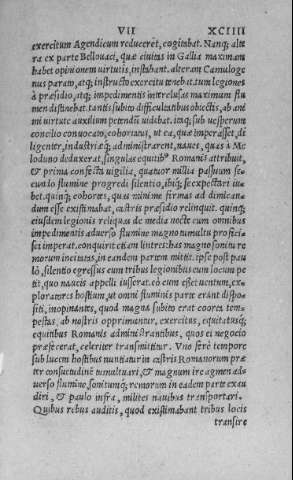 VII XCIIII
exercitum Agendicum reduceret, cogitabat. Nanq; alte
ra ex parte Bellouaci, quæ ciuitas in Gallia maximam
habet opinionem uirtutis, instabant. alteram Camuloge
nus parato, atq; instructo exercitu tenebat. tum legiones
à præsidio, atq; impedimentis interclusas maximum flu
men distinebat. tantis subito difficultatibus obiectis, ab ani
mi uirtute auxilium petendũ uidebat. itaq; sub uesperum
concilio conuocato, cohortatus, ut ea, quæ imperasset, di
ligenter, industriæq; administrarent, naues, quas à Me
loduno deduxerat, singulas equitib9 Romanis attribuit,
& prima confecta uigilia, quatuor millia passuum se
cundo flumine progredi silentio, ibiq; se expectari iu
bet. quinq; cohortes, quas minime firmas ad dimican
dum esse existimabat, castris præsidio relinquit. quinq;
eiusdem legionis reliquas de media nocte cum omnibus
impedimentis aduerso flumine magno tumultu profici
sci imperat. conquirit etiam lintres. has magno sonitu re
morum incitatas, in eandem partem mittit. ipse post pau
lò, silentio egressus cum tribus legionibus eum locum pe
tit, quo naueis appelli iusserat. eò cum esset uentum, ex
ploratores hostium, ut omni fluminis parte erant dispo
siti, inopinantes, quod magna subito erat coorta tem
pestas, ab nostris opprimuntur, exercitus, equitatusq;
equitibus Romanis administrantibus, quos ei negocio
præfecerat, celeriter transmittitur. Uno ferè tempore
sub lucem hostibus nuntiatur in castris Romanorum præ
ter consuetudinẽ tumultuari, & magnum ire agmen ad
uerso flumine, sonitumq; remorum in eadem parte exau
diri, & paulo infra, milites nauibus transportari.
Quibus rebus auditis, quod existimabant tribus locis
transire